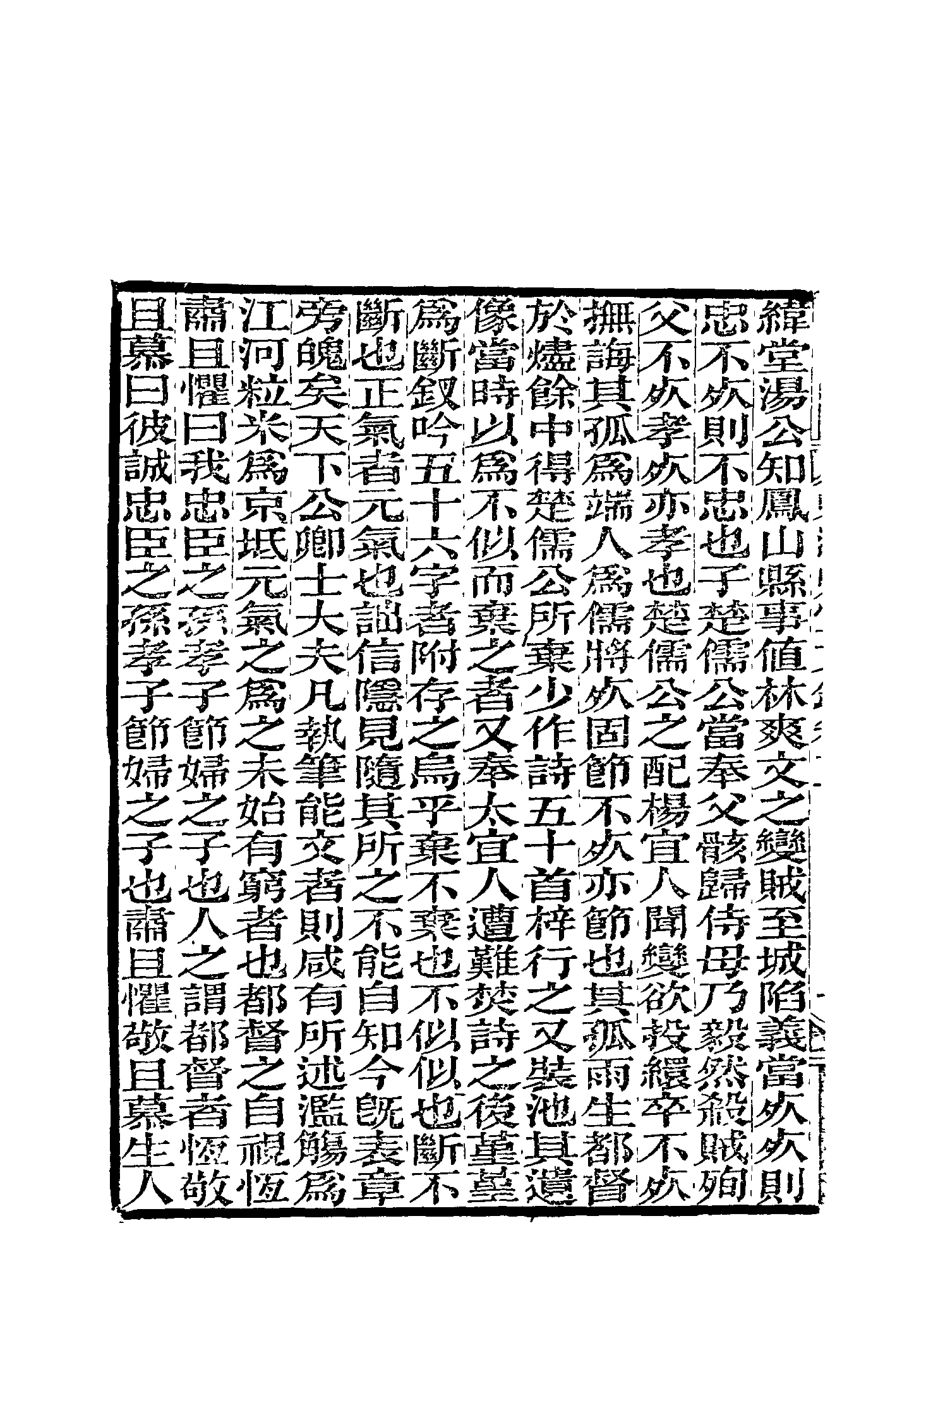 緯堂湯公知鳳山縣事值林爽文之變賊至城陷義當㱙㱙則
忠不㱙則不忠也子楚儒公當奉父骸歸侍母乃毅然殺賊殉
父不㱙孝㱙亦孝也楚儒公之配楊宜人聞變欲投繯卒不㱙
撫誨其孤爲端人爲儒將㱙固節不㱙亦節也其孤雨生都督
於燼餘中得楚儒公所棄少作詩五十首梓行之又裝池其遺
像當時以爲不似而棄之者又奉太宜人遭難焚詩之後堇堇
爲斷釵吟五十六字者附存之烏乎棄不棄也不似似也斷不
斷也正氣者元氣也詘信隱見隨其所之不能自知今旣表章
旁魄矣天下公卿士大夫凡執筆能文者則咸有所述濫觴爲
江河粒米爲京坻元氣之爲之未始有窮者也都督之自視恆
肅且懼曰我忠臣之孫孝子節婦之子也人之謂都督者恆敬
且慕曰彼誠忠臣之孫孝子節婦之子也肅且懼敬且慕生人